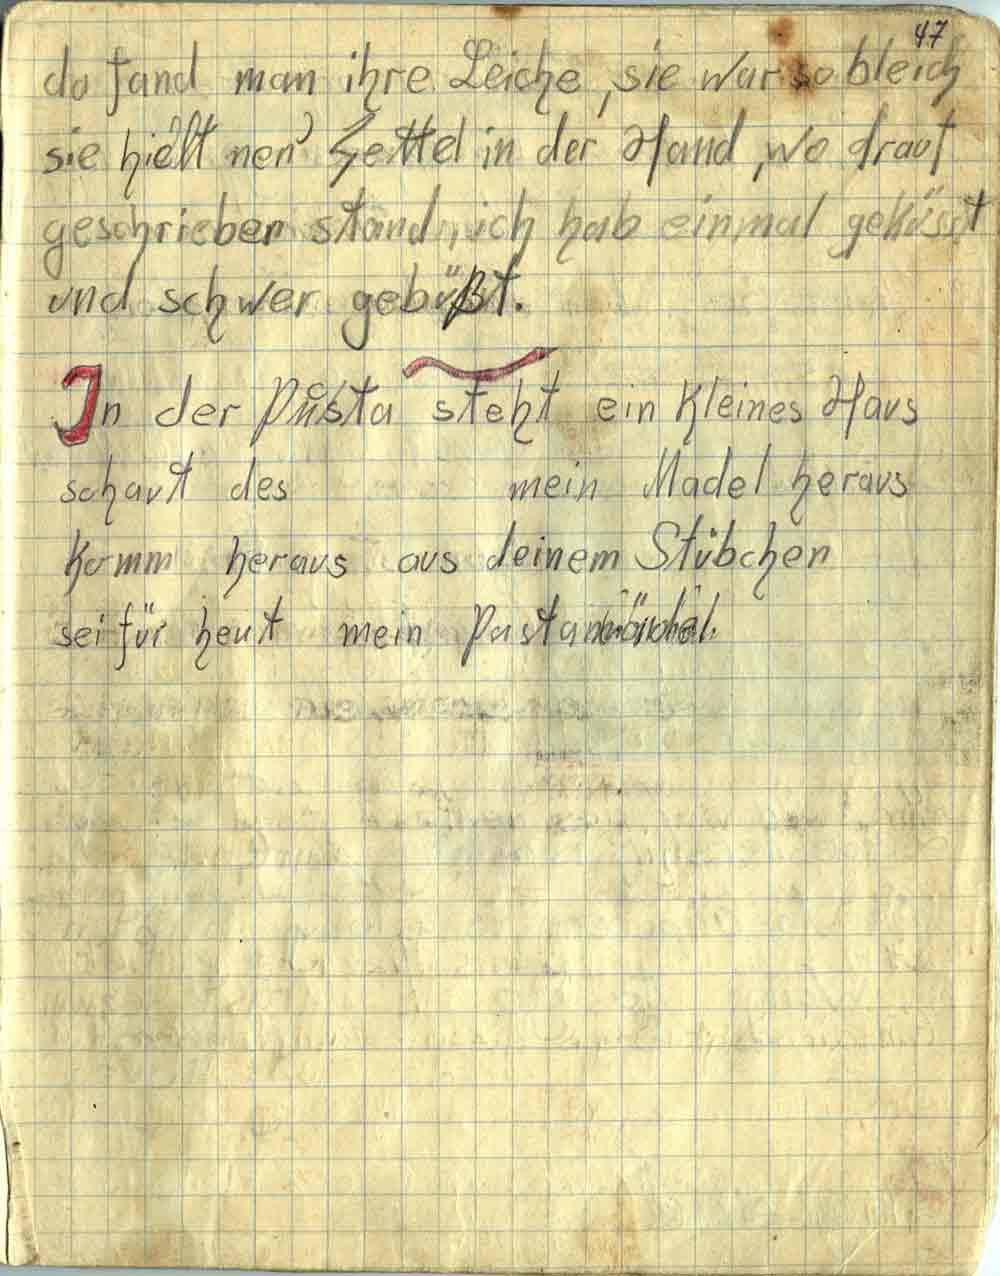 47
da fand man ihre Leiche, sie war so bleich
sie hielt nen' Zettel in der Hand, wo drauf
geschrieben stand, ich hab einmal geküsst
und schwer gebüßt.
In der Pusta steht ein kleines Haus
schaut des mein Madel heraus
Komm heraus aus deinem Stübchen
sei für heut mein